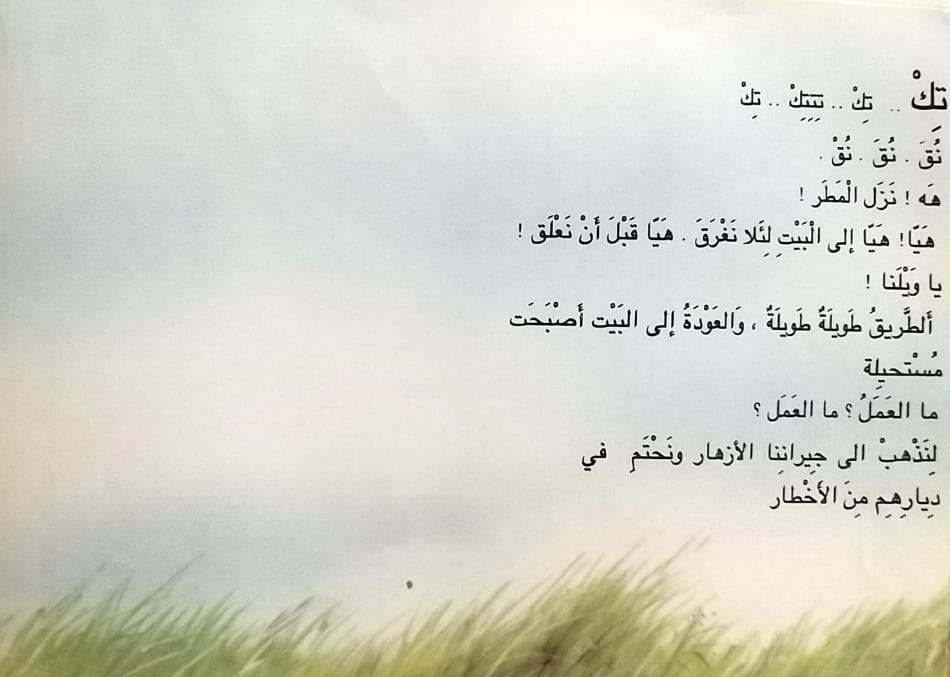 تِكْ .. تِكْ .. تِتِتِكْ .. تِكْ
نُقَ . نُقَ . نُقْ .
هَه ! نَزَل الْمَطَر !
هَيّا! هَيّا إلى الْبَيْتِ لِئَلا نَغْرَقَ . هَيّا قَبْلَ أَنْ نَعْلَق !
يا وَيْلَنا !
أَلطَّريقُ طَويلَةٌ طَويلَةٌ ، وَالعَوْدَةُ إلى البَيْت أَصْبَحَت
مُسْتَحيلِة
ما العَمَلُ؟ ما العَمَل؟
لِنَذْهبْ الى جيرانِنا الأزهار ونَحْتَمِ في
دِيارِهِم مِنَ الأَخْطار